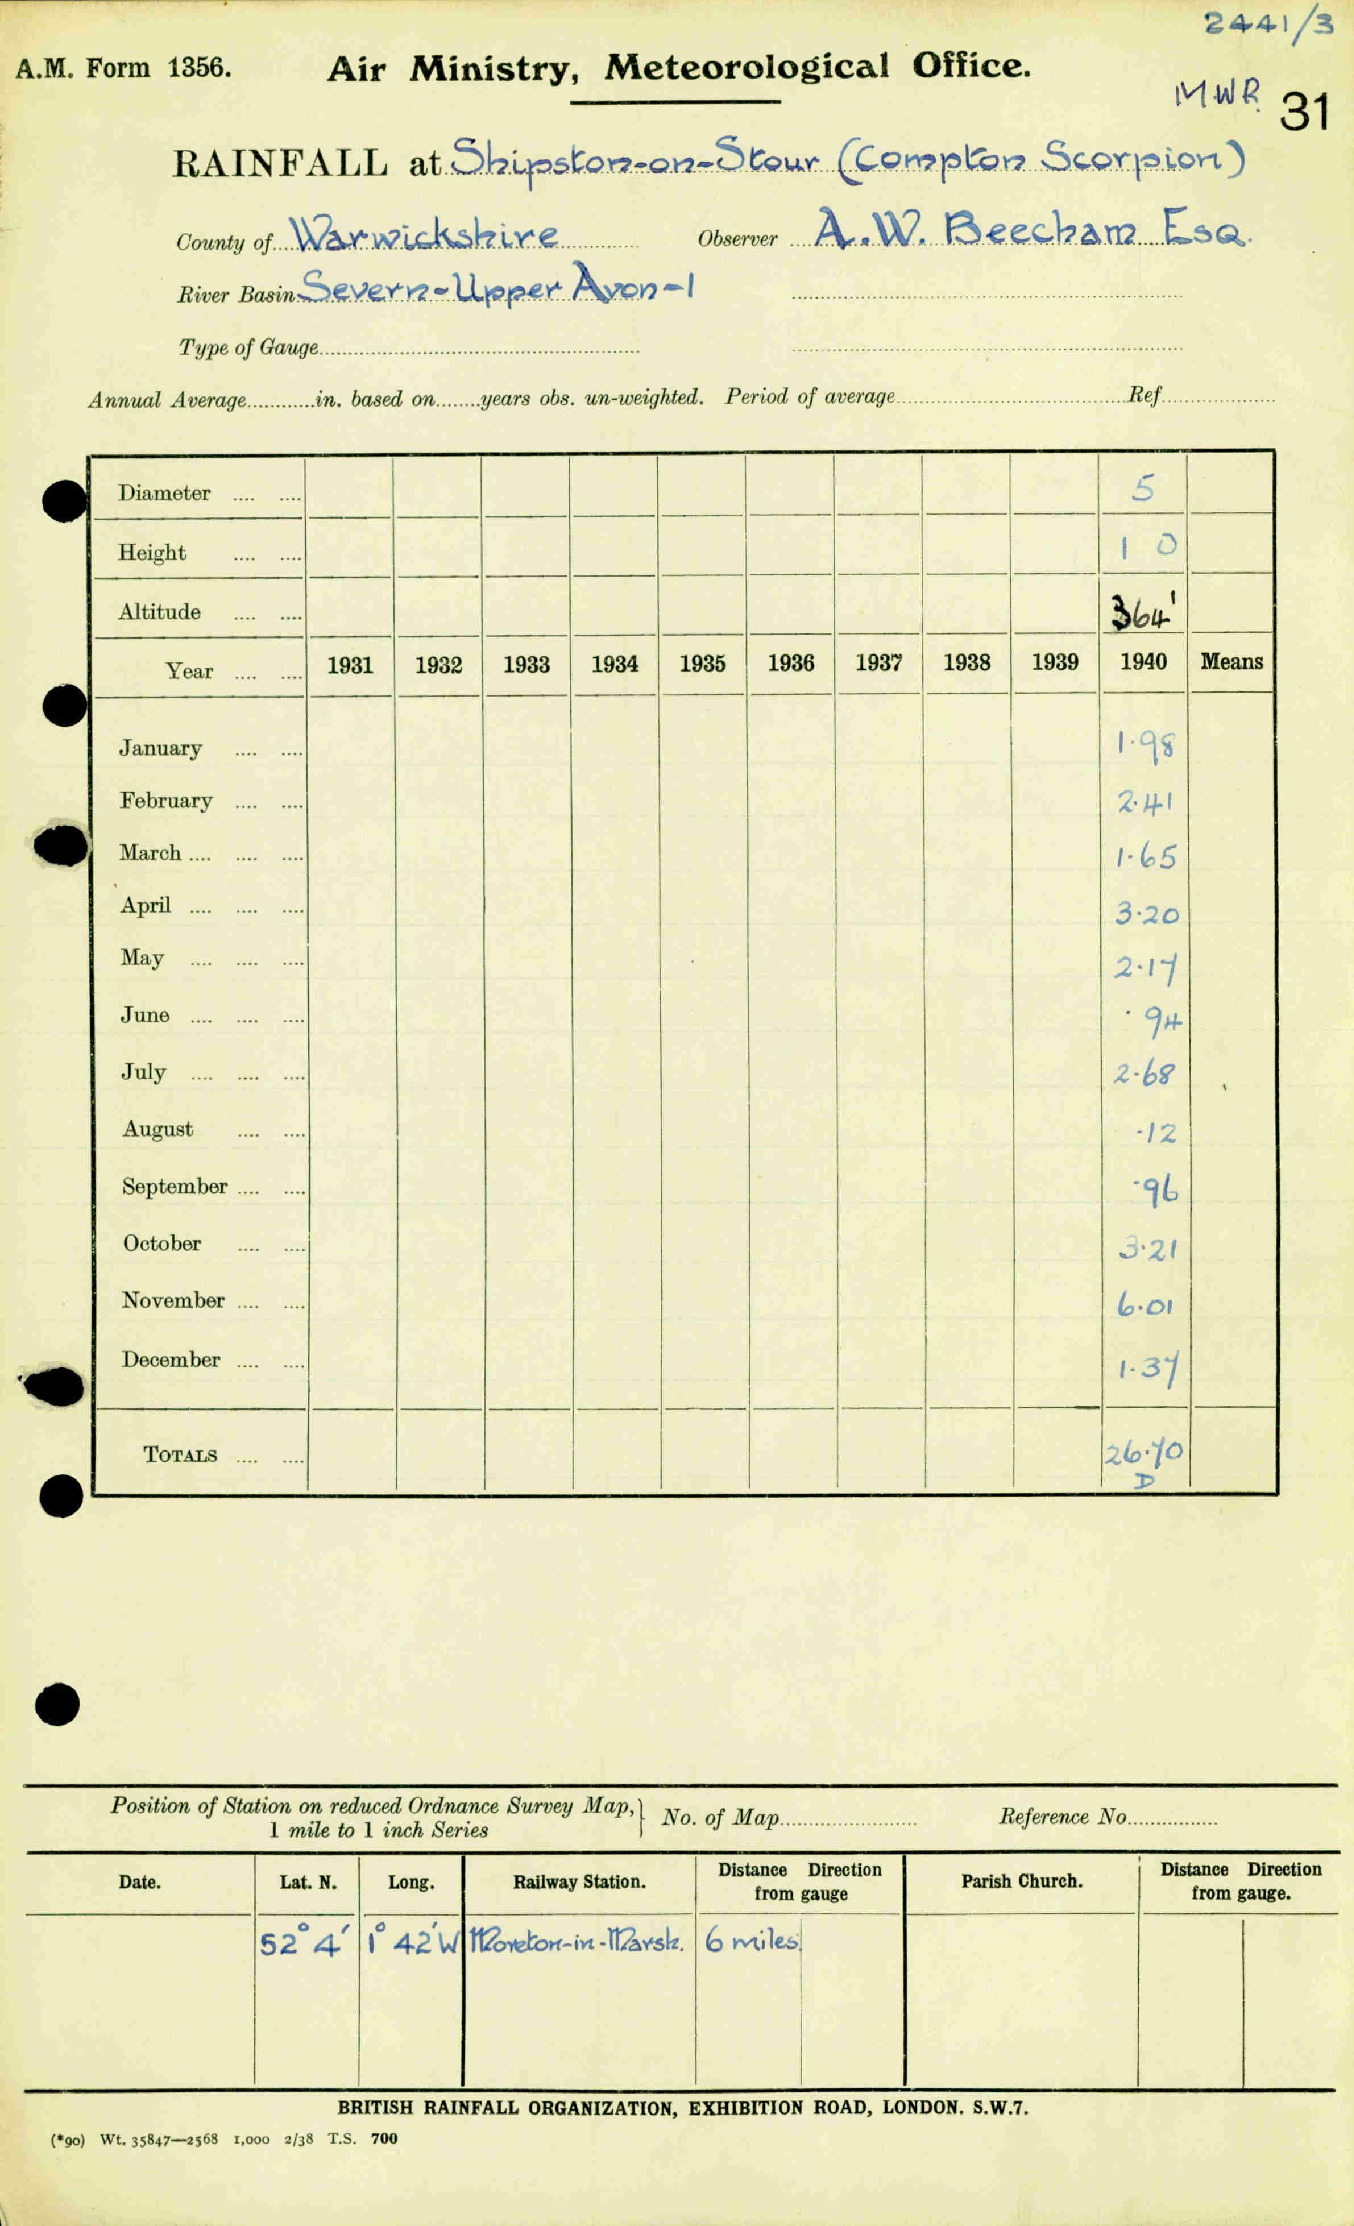 2441/3
A.M. Form 1356. Air Ministry, Meteorological Office.
MWR 31
RAINFALL at Shipston-on-Stour (Compton Scorpion)
County of Warwickshire Observer A.W. Beecham Esq.
River Basin Severn-Upper Avon-1
Type of Gauge
Annual Average in. based on years obs. un-weighted. Period of average Ref
Diameter 5
Height 1 0
Altitude 364'
Year 1931 1932 1933 1934 1935 1936 1937 1938 1939 1940 Means
January 1.98
February 2.41
March 1.65
April 3.20
May 2.17
June .94
July 2.68
August .12
September .96
October 3.21
November 6.01
December 1.37
TOTALS 26.70
D
Position of Station on reduced Ordnance Survey Map, No. of Map Reference No.
1 mile to 1 inch Series
Date. Lat. N. Long. Railway Station. Distance Direction from gauge Parish Church. Distance Direction from gauge.
52° 4' 1° 42'W Moreton-in-Marsh. 6 miles
BRITISH RAINFALL ORGANIZATION, EXHIBITION ROAD, LONDON. S.W.7.
(*90) Wt. 35847—2568 1,000 2/38 T.S. 700